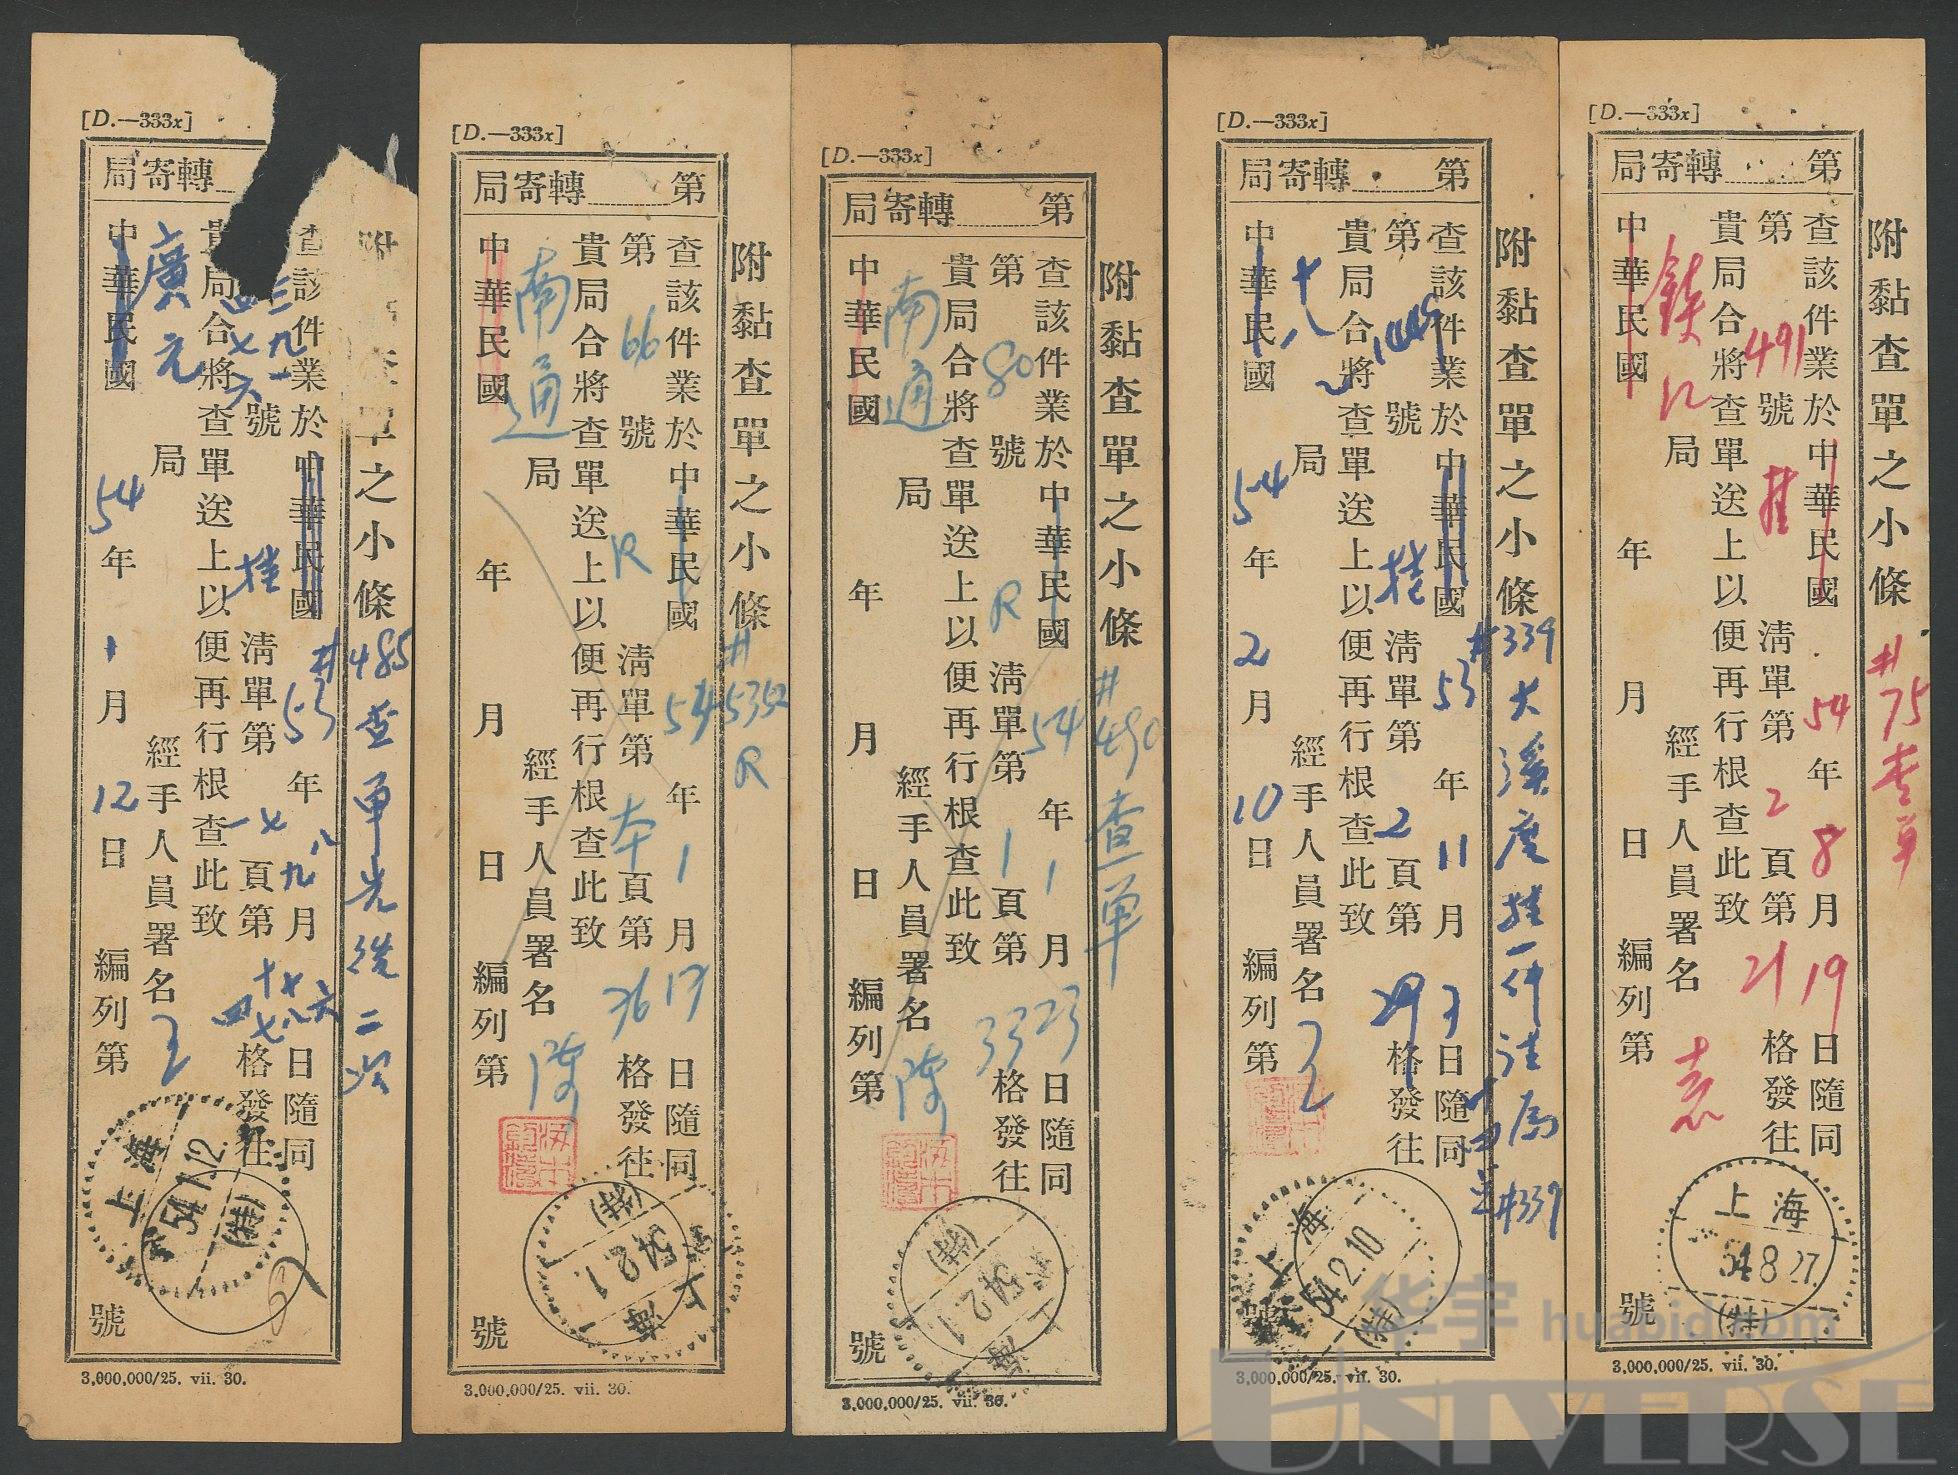 [D.—333x]
局寄轉
附 查單之小條
#485查單先後二次
查該件業於中華民國53年八九月
日隨同
三九一
四七六
號 挂 清單第一七頁第
十七八六
四七
格發往
貴局合將查單送上以便再行根查此致
廣元局
經手人員署名
中華民國54年1月12日
編列第 號
上海
54.1.12.
(特)
3,000,000/25. vii. 30.
[D.—333x]
第 轉寄局
附黏查單之小條
#5352
R
查該件業於中華民國54年1月17日隨同
第66號 R 清單第本頁第36格發往
貴局合將查單送上以便再行根查此致
南通局
經手人員署名 陳
中華民國 年 月 日
編列第 號
上海
54.2.1.
(特)
3,000,000/25. vii. 30.
[D.—333x]
第 轉寄局
附黏查單之小條
#490查單
查該件業於中華民國54年1月23日隨同
第80號 R 清單第1頁第33格發往
貴局合將查單送上以便再行根查此致
南通局
經手人員署名 陳
中華民國 年 月 日
編列第 號
上海
54.2.1
(特)
3,000,000/25. vii. 30.
[D.—333x]
第 轉寄局
附黏查單之小條
#339大溪 挂一件
#339
查該件業於中華民國53年11月 日隨同
第 號 挂 清單第2頁第29格發往
貴局合將查單送上以便再行根查此致
十八局
經手人員署名
中華民國54年2月10日
編列第 號
上海
54.2.10
(特)
3,000,000/25. vii. 30.
[D.—333x]
第 轉寄局
附黏查單之小條
#75查單
查該件業於中華民國54年8月19日隨同
第491號 挂 清單第2頁第21格發往
貴局合將查單送上以便再行根查此致
局
經手人員署名
中華民國 年 月 日
編列第 號
上海
54.8.27.
(特)
3,000,000/25. vii. 30.
华宇 huabid.com
UNIVERSE